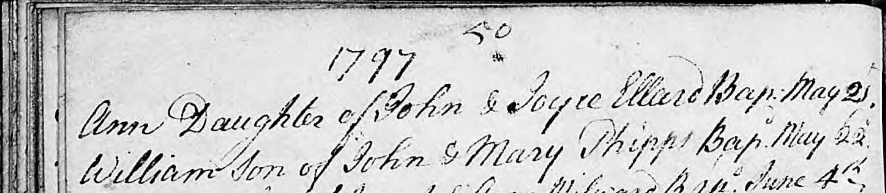 50
1797
Ann Daughter of John & Joyce Ellard Bap: May 21.
William Son of John & Mary Phipps Bap. May 22
June 4th